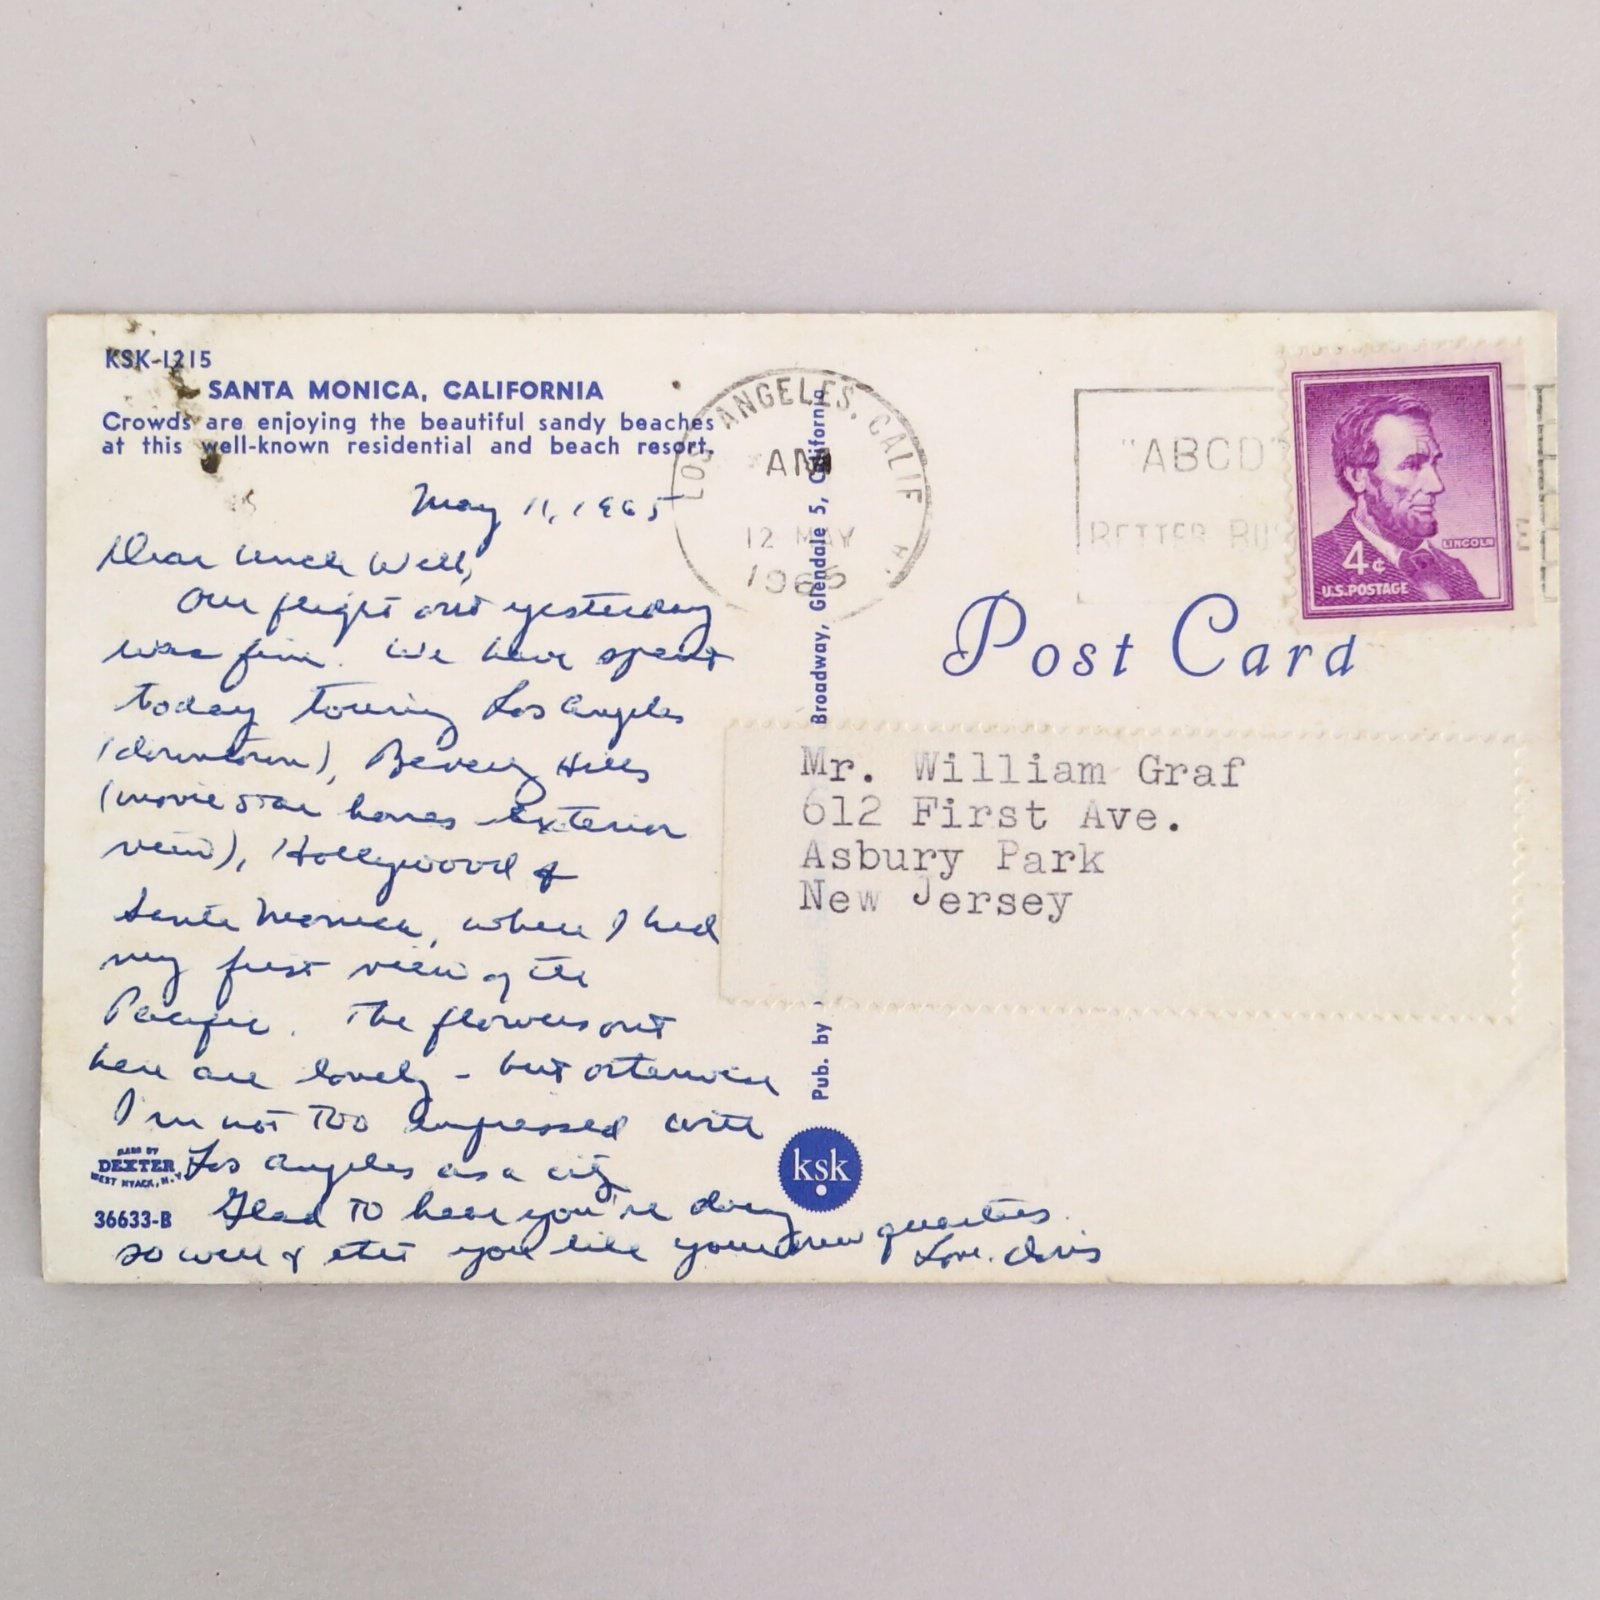 KSK-1215
SANTA MONICA, CALIFORNIA
Crowds are enjoying the beautiful sandy beaches
at this well-known residential and beach resort.
May 11, 1965
Dear Uncle Will,
Our flight out yesterday
was fine. We have spent
today touring Los Angeles
(downtown), Beverly Hills
(movie star homes exterior
view), Hollywood &
Santa Monica, where I had
my first view of the
Pacific. The flowers out
here are lovely - but otherwise
I'm not too impressed with
Los Angeles as a city
Glad to hear you're doing
so well & that you like your new quarters.
Love,
MADE BY
DEXTER
WEST NYACK, N.Y.
36633-B
Pub. by
Broadway, Glendale 5, California
ksk
LOS ANGELES, CALIF
AM
12 MAY
1965
"ABCD"
BETTER
LINCOLN
4¢
U.S. POSTAGE
Post Card
Mr. William Graf
612 First Ave.
Asbury Park
New Jersey